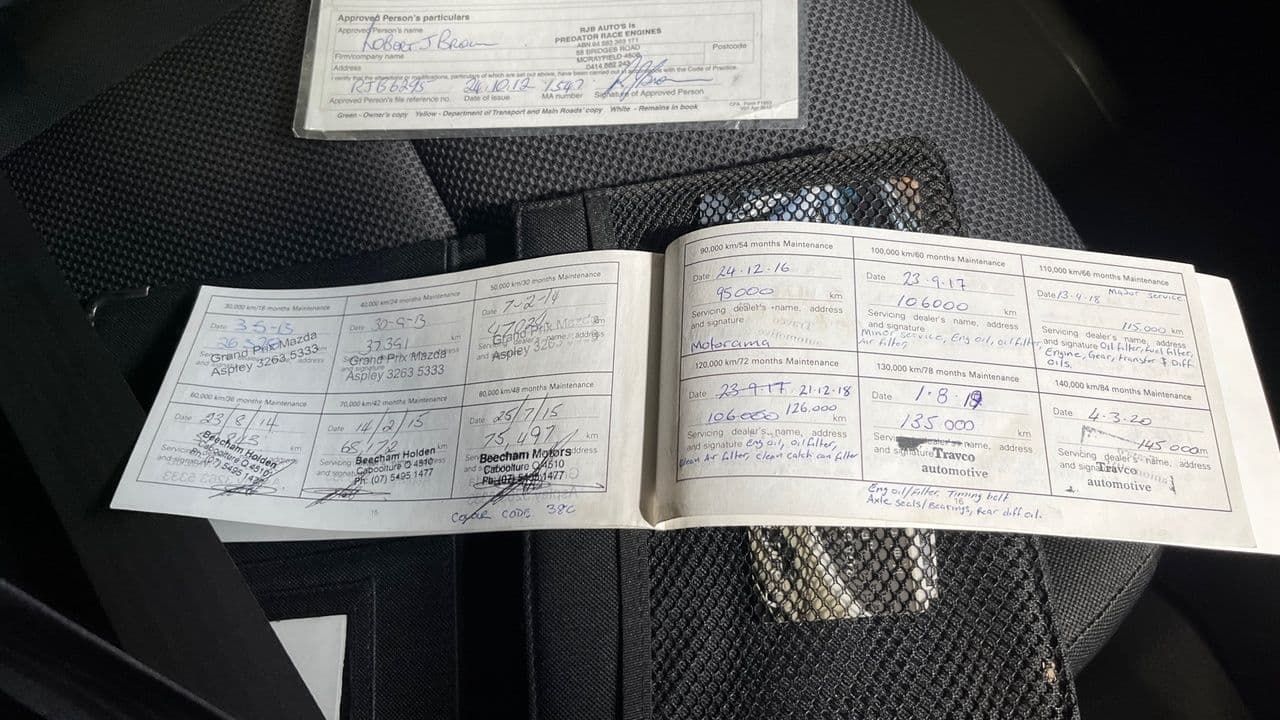 Approved Person's particulars
Approved Person's name
Robert J Brown
RJB AUTO'S is
PREDATOR RACE ENGINES
ABN 94 583 363 171
58 BRIDGES ROAD
MORAYFIELD 4506
0414 882 243
Firm/company name
Postcode
Address
I certify that the alterations or modifications, particulars of which are set out above, have been carried out in accordance with the Code of Practice.
RJB6295 24.10.12 1547
Approved Person's file reference no. Date of issue MA number Signature of Approved Person
Green - Owner's copy Yellow - Department of Transport and Main Roads' copy White - Remains in book
30,000 km/18 months Maintenance
Date 3-5-13
Grand Prix Mazda
Aspley 3263 5333
40,000 km/24 months Maintenance
Date 30-9-13
37391 km
Grand Prix Mazda
Aspley 3263 5333
50,000 km/30 months Maintenance
Date 7-2-14
km
Grand Prix Mazda
Aspley 3263
60,000 km/36 months Maintenance
Date 23/8/14
km
Beecham Holden
Caboolture Q 4510
Ph: (07) 5495 1477
70,000 km/42 months Maintenance
Date 14/2/15
65,172 km
Beecham Holden
Caboolture Q 4510
Ph: (07) 5495 1477
80,000 km/48 months Maintenance
Date 25/7/15
75,497 km
Beecham Motors
Caboolture Q 4510
Ph: (07) 5495 1477
15
COLOUR CODE 38C
90,000 km/54 months Maintenance
Date 24.12.16
95000 km
Servicing dealer's name, address
and signature
Motorama
100,000 km/60 months Maintenance
Date 23.9.17
106000 km
Servicing dealer's name, address
and signature
Minor service, Eng oil, oil filter,
Air filter,
110,000 km/66 months Maintenance
Major service
Date 13.4.18
115.000 km
Servicing dealer's name, address
and signature Oil filter, fuel filter,
Engine, Gear, transfer & Diff
oils.
120,000 km/72 months Maintenance
Date 23-9-17 21.12.18
106000 126.000 km
Servicing dealer's name, address
and signature Eng oil, oil filter,
clean Air filter, clean catch can filter
130,000 km/78 months Maintenance
Date 1.8.19
135000 km
Servicing dealer's name, address
and signature Travco
automotive
140,000 km/84 months Maintenance
Date 4.3.20
145000 km
Servicing dealer's name, address
and signature Travco
automotive
16
Eng oil/filter, Timing belt
Axle seals/Bearings, Rear diff oil.